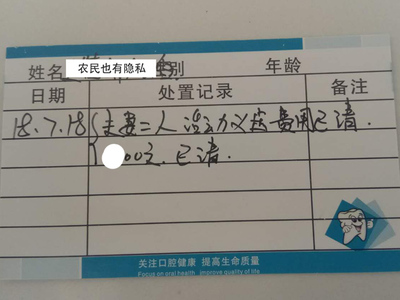 姓名 农民也有隐私 别 年龄
日期 处置记录 备注
18.7.18 夫妻二人 活动义齿费用已清.
00元.已清.
关注口腔健康 提高生命质量
Focus on oral health improve quality of life